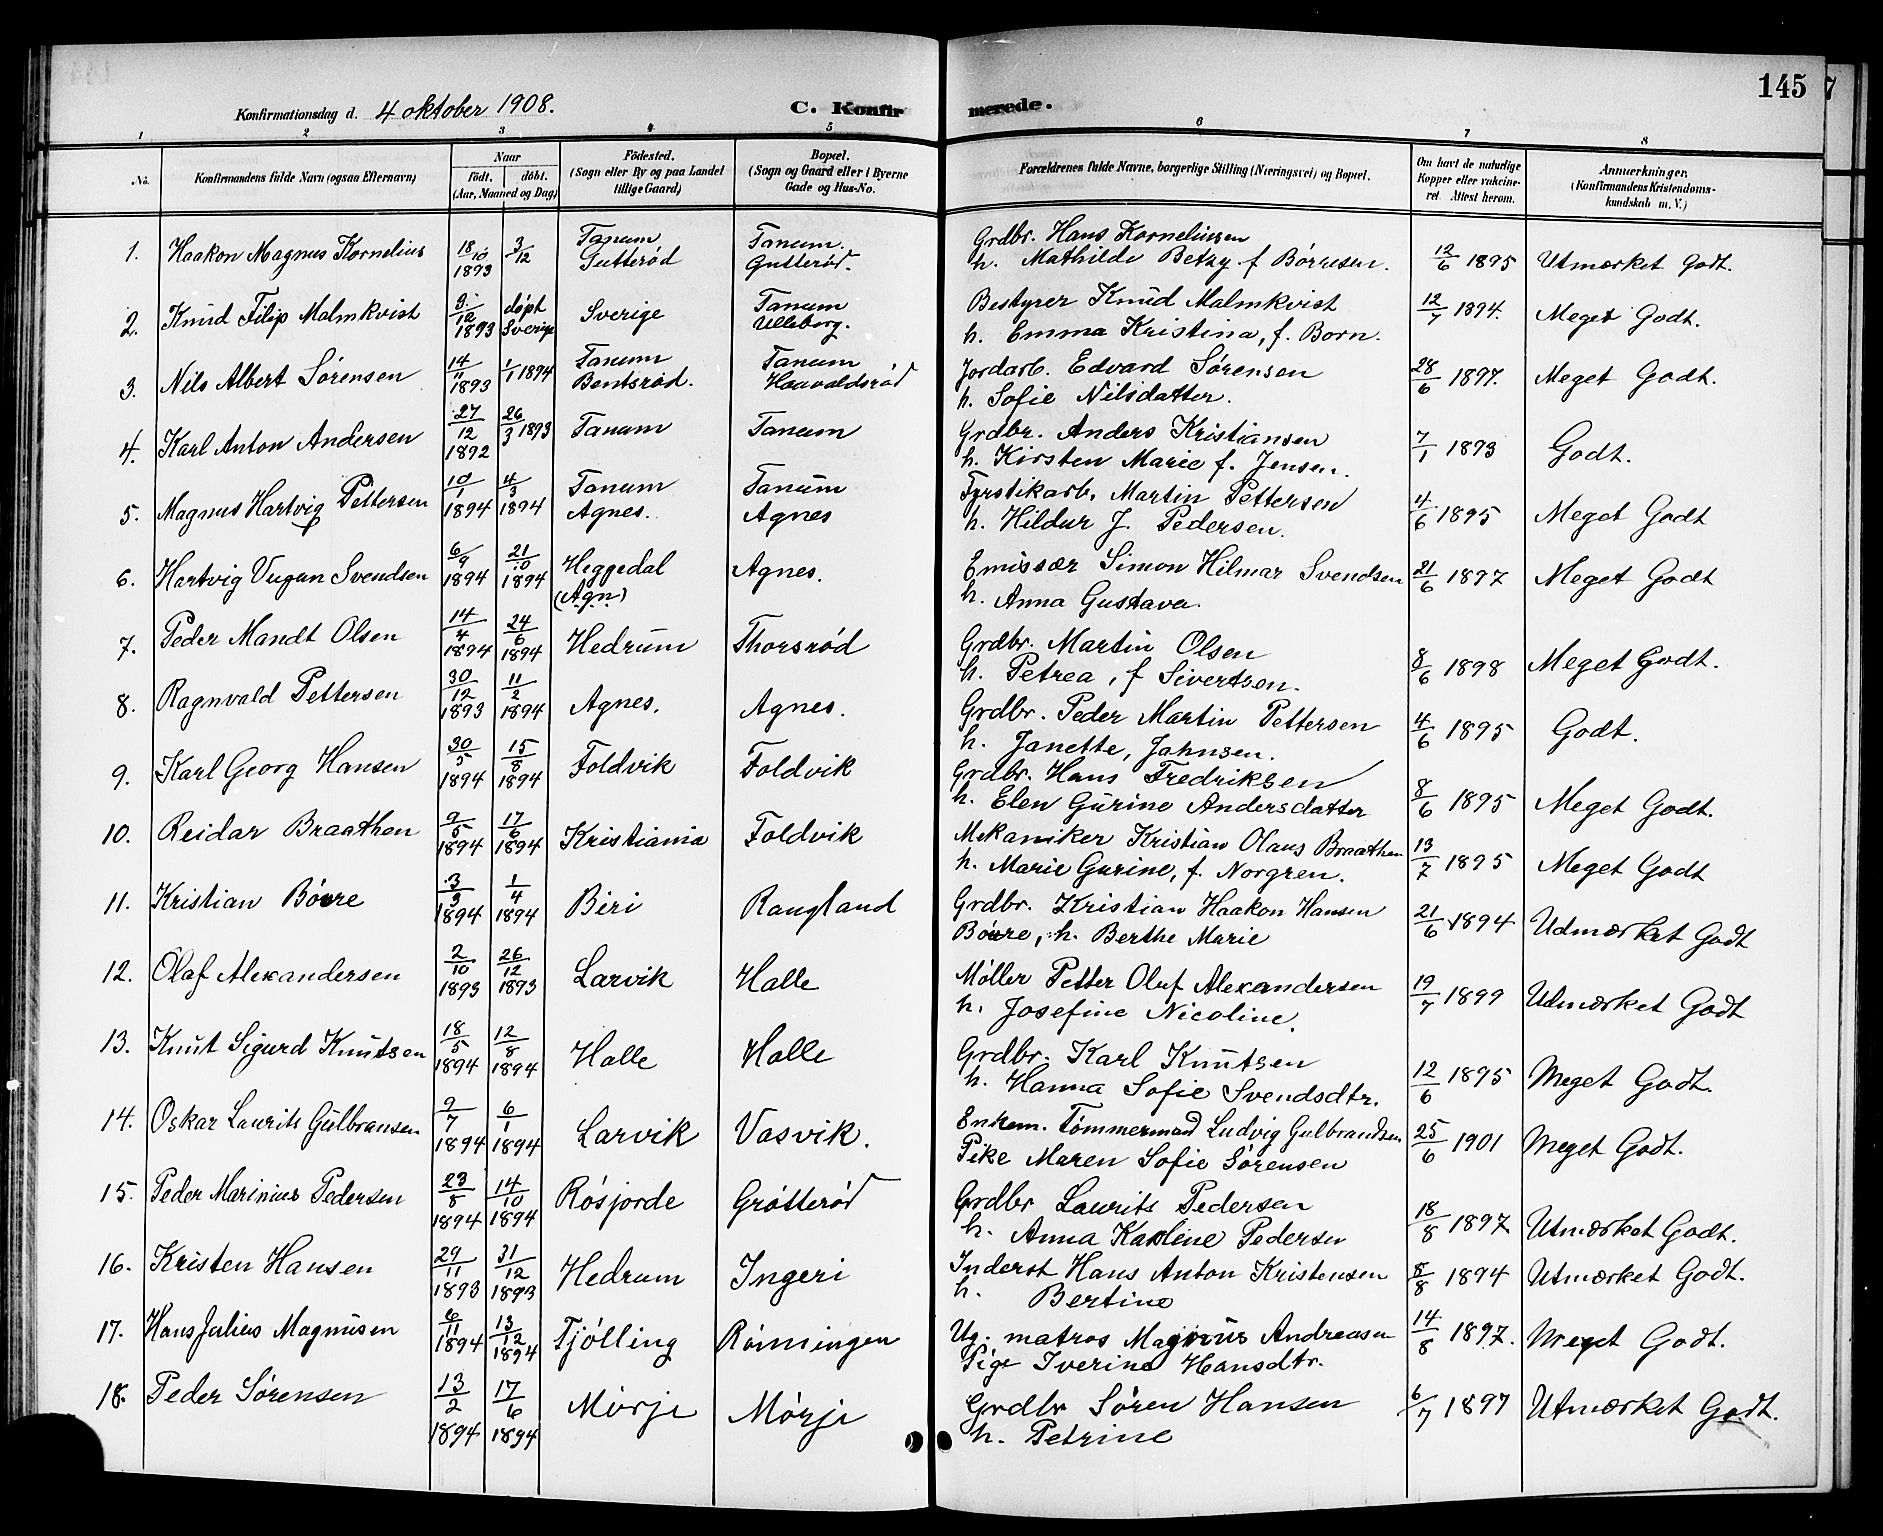 145
Konfirmationsdag d. 4 oktober 1908. C. Konfirmerede.
1 2 3 4 5 6 7 8
No. Konfirmandens fulde Navn (ogsaa Efternavn) Naar født. døbt. (Aar, Maaned og Dag) Fødested. (Sogn eller By og paa Landet tillige Gaard) Bopæl. (Sogn og Gaard eller i Byerne Gade og Hus-No. Forældrenes fulde Navne, borgerlige Stilling (Næringsvei) og Bopæl. Om havt de naturlige Kopper eller vakcineret. Attest herom. Anmærkninger. (Konfirmandens Kristendomskundskab m. V.)
1. Haakon Magnus Kornelius 18/10 1893 3/12 Tanum Gutterød Tanum. Gutterød. Grdbr. Hans Korneliusen
h. Mathilde Betzy f Børresen. 12/6 1895 Utmærket Godt.
2. Knud Filip Malmkvist 9/12 1893 døpt Sverige Sverige Tanum Ulleborg. Bestyrer Knud Malmkvist
h. Emma Kristina, f. Born. 12/7 1894. Meget Godt.
3. Nils Albert Sørensen 14/11 1893 1/1 1894 Tanum Bentsrød. Tanum Haavaldsrød Jordarb. Edvard Sørensen
h. Sofie Nilsdatter. 28/6 1897. Meget Godt.
4. Karl Anton Andersen 27/12 1892 26/3 1893 Tanum Tanum Grdbr. Anders Kristiansen
h. Kirsten Marie f. Jensen. 7/1 1893 Godt.
5. Magnus Hartvig Pettersen 10/1 1894 4/3 1894 Tanum Agnes. Tanum Agnes Fyrstikarb. Martin Pettersen
h. Hildur J. Pedersen. 4/6 1895 Meget Godt
6. Hartvig Svendsen 6/9 1894 21/10 1894 Heggedal (Agn) Agnes. Emissær Simon Hilmar Svendsen
h. Anna Gustava. 21/6 1897 Meget Godt
7. Peder Mandt Olsen 14/4 1894 24/6 1894 Hedrum Thorsrød Grdbr. Martin Olsen
h. Petrea, f Sivertsen. 8/6 1898 Meget Godt.
8. Ragnvald Pettersen 30/12 1893 11/2 1894 Agnes. Agnes. Grdbr. Peder Martin Pettersen
h. Janette, Jahnsen. 4/6 1895 Godt.
9. Karl Georg Hansen 30/5 1894 15/8 1894 Foldvik Foldvik Grdbr. Hans Fredriksen
h. Elen Gurine Andersdatter 8/6 1895 Meget Godt.
10. Reidar Braathen 9/5 1894 17/6 1894 Kristiania Foldvik Mekaniker Kristian Olaus Braathen
h. Marie Gurine, f. Norgren. 13/7 1895 Meget Godt
11. Kristian Bøvre 3/3 1894 1/4 1894 Biri Raugland Grdbr. Kristian Haakon Hansen
Bøvre, h. Berthe Marie 21/6 1894 Udmærket Godt
12. Olaf Alexandersen 2/10 1893 26/12 1893 Larvik Halle Møller Petter Oluf Alexandersen
h. Josefine Nicoline. 19/7 1899 Udmærket Godt
13. Knut Sigurd Knutsen 18/5 1894 12/8 1894 Halle Halle Grdbr. Karl Knutsen
h. Hanna Sofie Svendsdtr. 12/6 1895 Meget Godt.
14. Oskar Laurits Gulbransen 9/7 1894 6/1 1894 Larvik Vasvik. Enkem. Tømmermand Ludvig Gulbrandsen
Pike Maren Sofie Sørensen 25/6 1901 Meget Godt.
15. Peder Marinius Pedersen 23/8 1894 14/10 1894 Røsjorde Grøtterød Grdbr Laurits Pedersen
h. Anna Karoline Pedersen 18/8 1897 Utmærket Godt.
16. Kristen Hansen 29/11 1893 31/12 1893 Hedrum Ingeri Inderst Hans Anton Kristensen
h. Bertine 8/8 1894 Utmærket Godt.
17. Hans Julius Magnusen 6/11 1894 13/12 1894 Tjølling Rømingen Ug. matros Magnus Andreasen
Pige Iverine Hansdtr. 14/8 1897. Meget Godt.
18. Peder Sørensen 13/2 1894 17/6 1894 Mørje Mørje Grdbr Søren Hansen
h. Petrine 6/7 1897 Utmærket Godt.